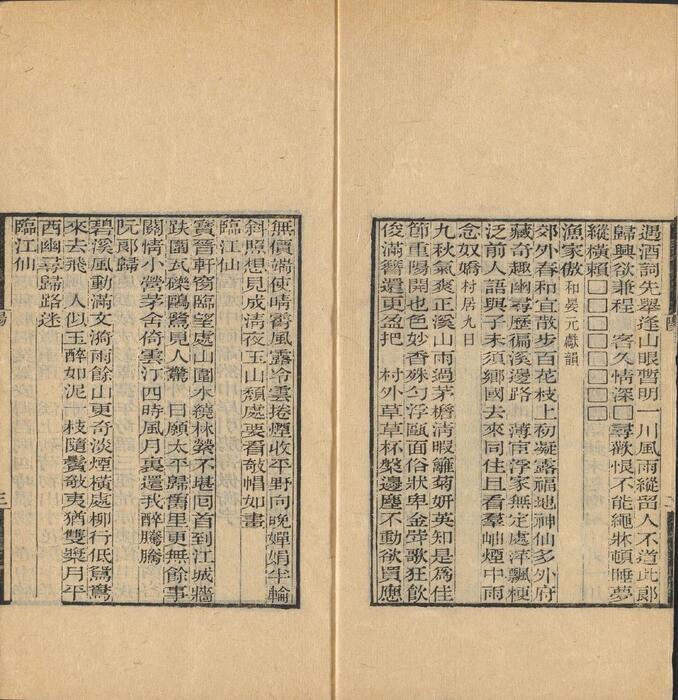 遇酒詞先舉逢山眼暫明一川風雨縱留人不道此郞
歸興欲兼程 客久情深□尋歡恨不能繩牀頓睡夢
縱橫賴□□□□□□
漁家傲和晏元獻韻
郊外春和宜散步百花枝上初凝露福地神仙多外府
藏奇趣幽尋歷徧溪邊路 薄宦浮家無定處萍飄梗
泛前人語與子未須鄕國去來同住且看羣岫煙中雨
念奴嬌村居九日
九秋氣爽正溪山雨過茅檐清暇籬菊姸英知是爲佳
節重陽開也色妙香殊匀浮甌面俗狀卑金斝歌狂飮
俊滿簪還更盈把 村外草草杯槃邊塵不動欲買應
無價端使晴霽風露冷雲捲煙收平野向晚嬋娟半輪
斜照想見成淸夜玉山頹處要看敧帽如畫
臨江仙
寶晉軒窗臨望處山圍水繞林縈不堪囘首到江城牆
趺圍瓦礫鷗鷺見人驚 日願太平歸舊里更無餘事
關情小營茅舍倚雲汀四時風月裏還我醉騰騰
阮郞歸
碧溪風動滿文漪雨餘山更奇淡煙橫處柳行低鴛鴦
來去飛 人似玉醉如泥一枝隨鬢敧夷猶雙槳月平
西幽尋歸路迷
臨江仙